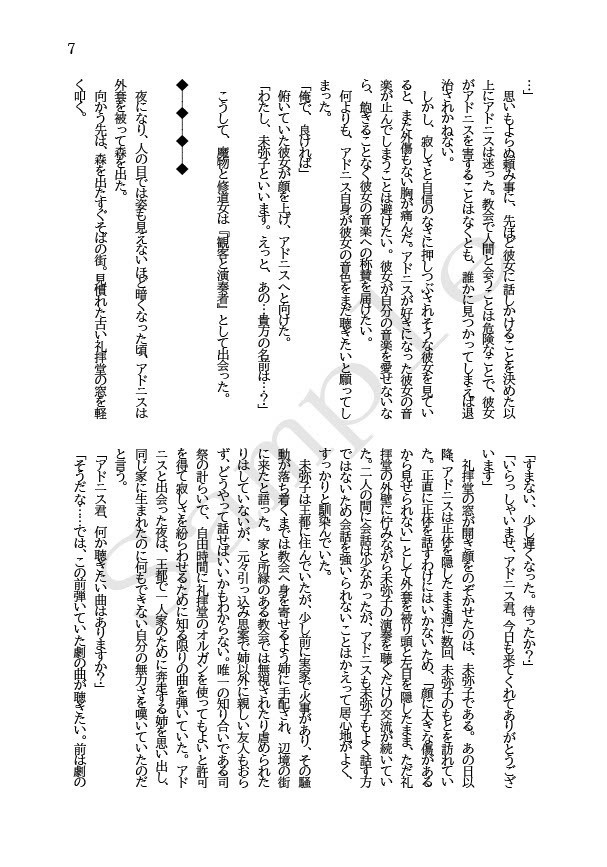 7
…」
　思いもよらぬ頼み事に、先ほど彼女に話しかけることを決めた以
上にアドニスは迷った。教会で人間と会うことは危険なことで、彼女
がアドニスを害することはなくとも、誰かに見つかってしまえば退
治されかねない。
　しかし、寂しさと自信のなさに押しつぶされそうな彼女を見てい
ると、また外傷もない胸が痛んだ。アドニスが好きになった彼女の音
楽が止んでしまうことは避けたい。彼女が自分の音楽を愛せないな
ら、飽きることなく彼女の音楽への称賛を届けたい。
　何よりも、アドニス自身が彼女の音色をまだ聴きたいと願ってし
まった。
「俺で、良ければ」
　俯いていた彼女が顔を上げ、アドニスへと向けた。
「わたし、未弥子といいます。えっと、あの…貴方の名前は…？」
　こうして、魔物と修道女は『観客と演奏者』として出会った。
◆―◆―◆―◆
　夜になり、人の目では姿も見えないほど暗くなった頃、アドニスは
外套を被って森を出た。
　向かう先は、森を出たすぐそばの街。見慣れた古い礼拝堂の窓を軽
く叩く。
「すまない、少し遅くなった。待ったか？」
「いらっしゃいませ、アドニス君。今日も来てくれてありがとうござ
います」
　礼拝堂の窓が開き顔をのぞかせたのは、未弥子である。あの日以
降、アドニスは正体を隠したまま週に数回、未弥子のもとを訪れてい
た。正直に正体を話すわけにはいかないため、「顔に大きな傷がある
から見せられない」として外套を被り頭と左目を隠したまま、ただ礼
拝堂の外壁に佇みながら未弥子の演奏を聴くだけの交流が続いてい
た。二人の間に会話は少なかったが、アドニスも未弥子もよく話す方
ではないため会話を強いられないことはかえって居心地がよく、
すっかりと馴染んでいた。
　未弥子は王都に住んでいたが、少し前に実家で火事があり、その騒
動が落ち着くまでは教会へ身を寄せるよう姉に手配され、辺境の街
に来たと語った。家と所縁のある教会では無視されたり虐められた
りはしていないが、元々引っ込み思案で姉以外に親しい友人もおら
ず、どうやって話せばいいかもわからない。唯一の知り合いである司
祭の計らいで、自由時間に礼拝堂のオルガンを使ってもよいと許可
を得て寂しさを紛らわせるために知る限りの曲を弾いていた。アド
ニスと出会った夜は、王都で一人家のために奔走する姉を思い出し、
同じ家に生まれたのに何もできない自分の無力さを嘆いていたのだ
と言う。
「アドニス君、何か聴きたい曲はありますか？」
「そうだな……では、この前弾いていた劇の曲が聴きたい。前は劇の
Sample